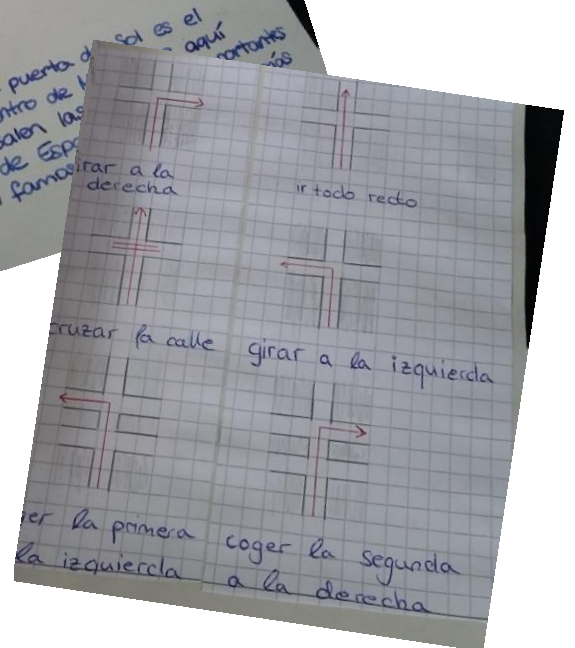 puerta d Sol es el
ntro de aquí
salen las portantes
de Esp más
famos
irar a la
derecha
ir todo recto
cruzar la calle
girar a la izquierda
er la primera
la izquierda
coger la segunda
a la derecha